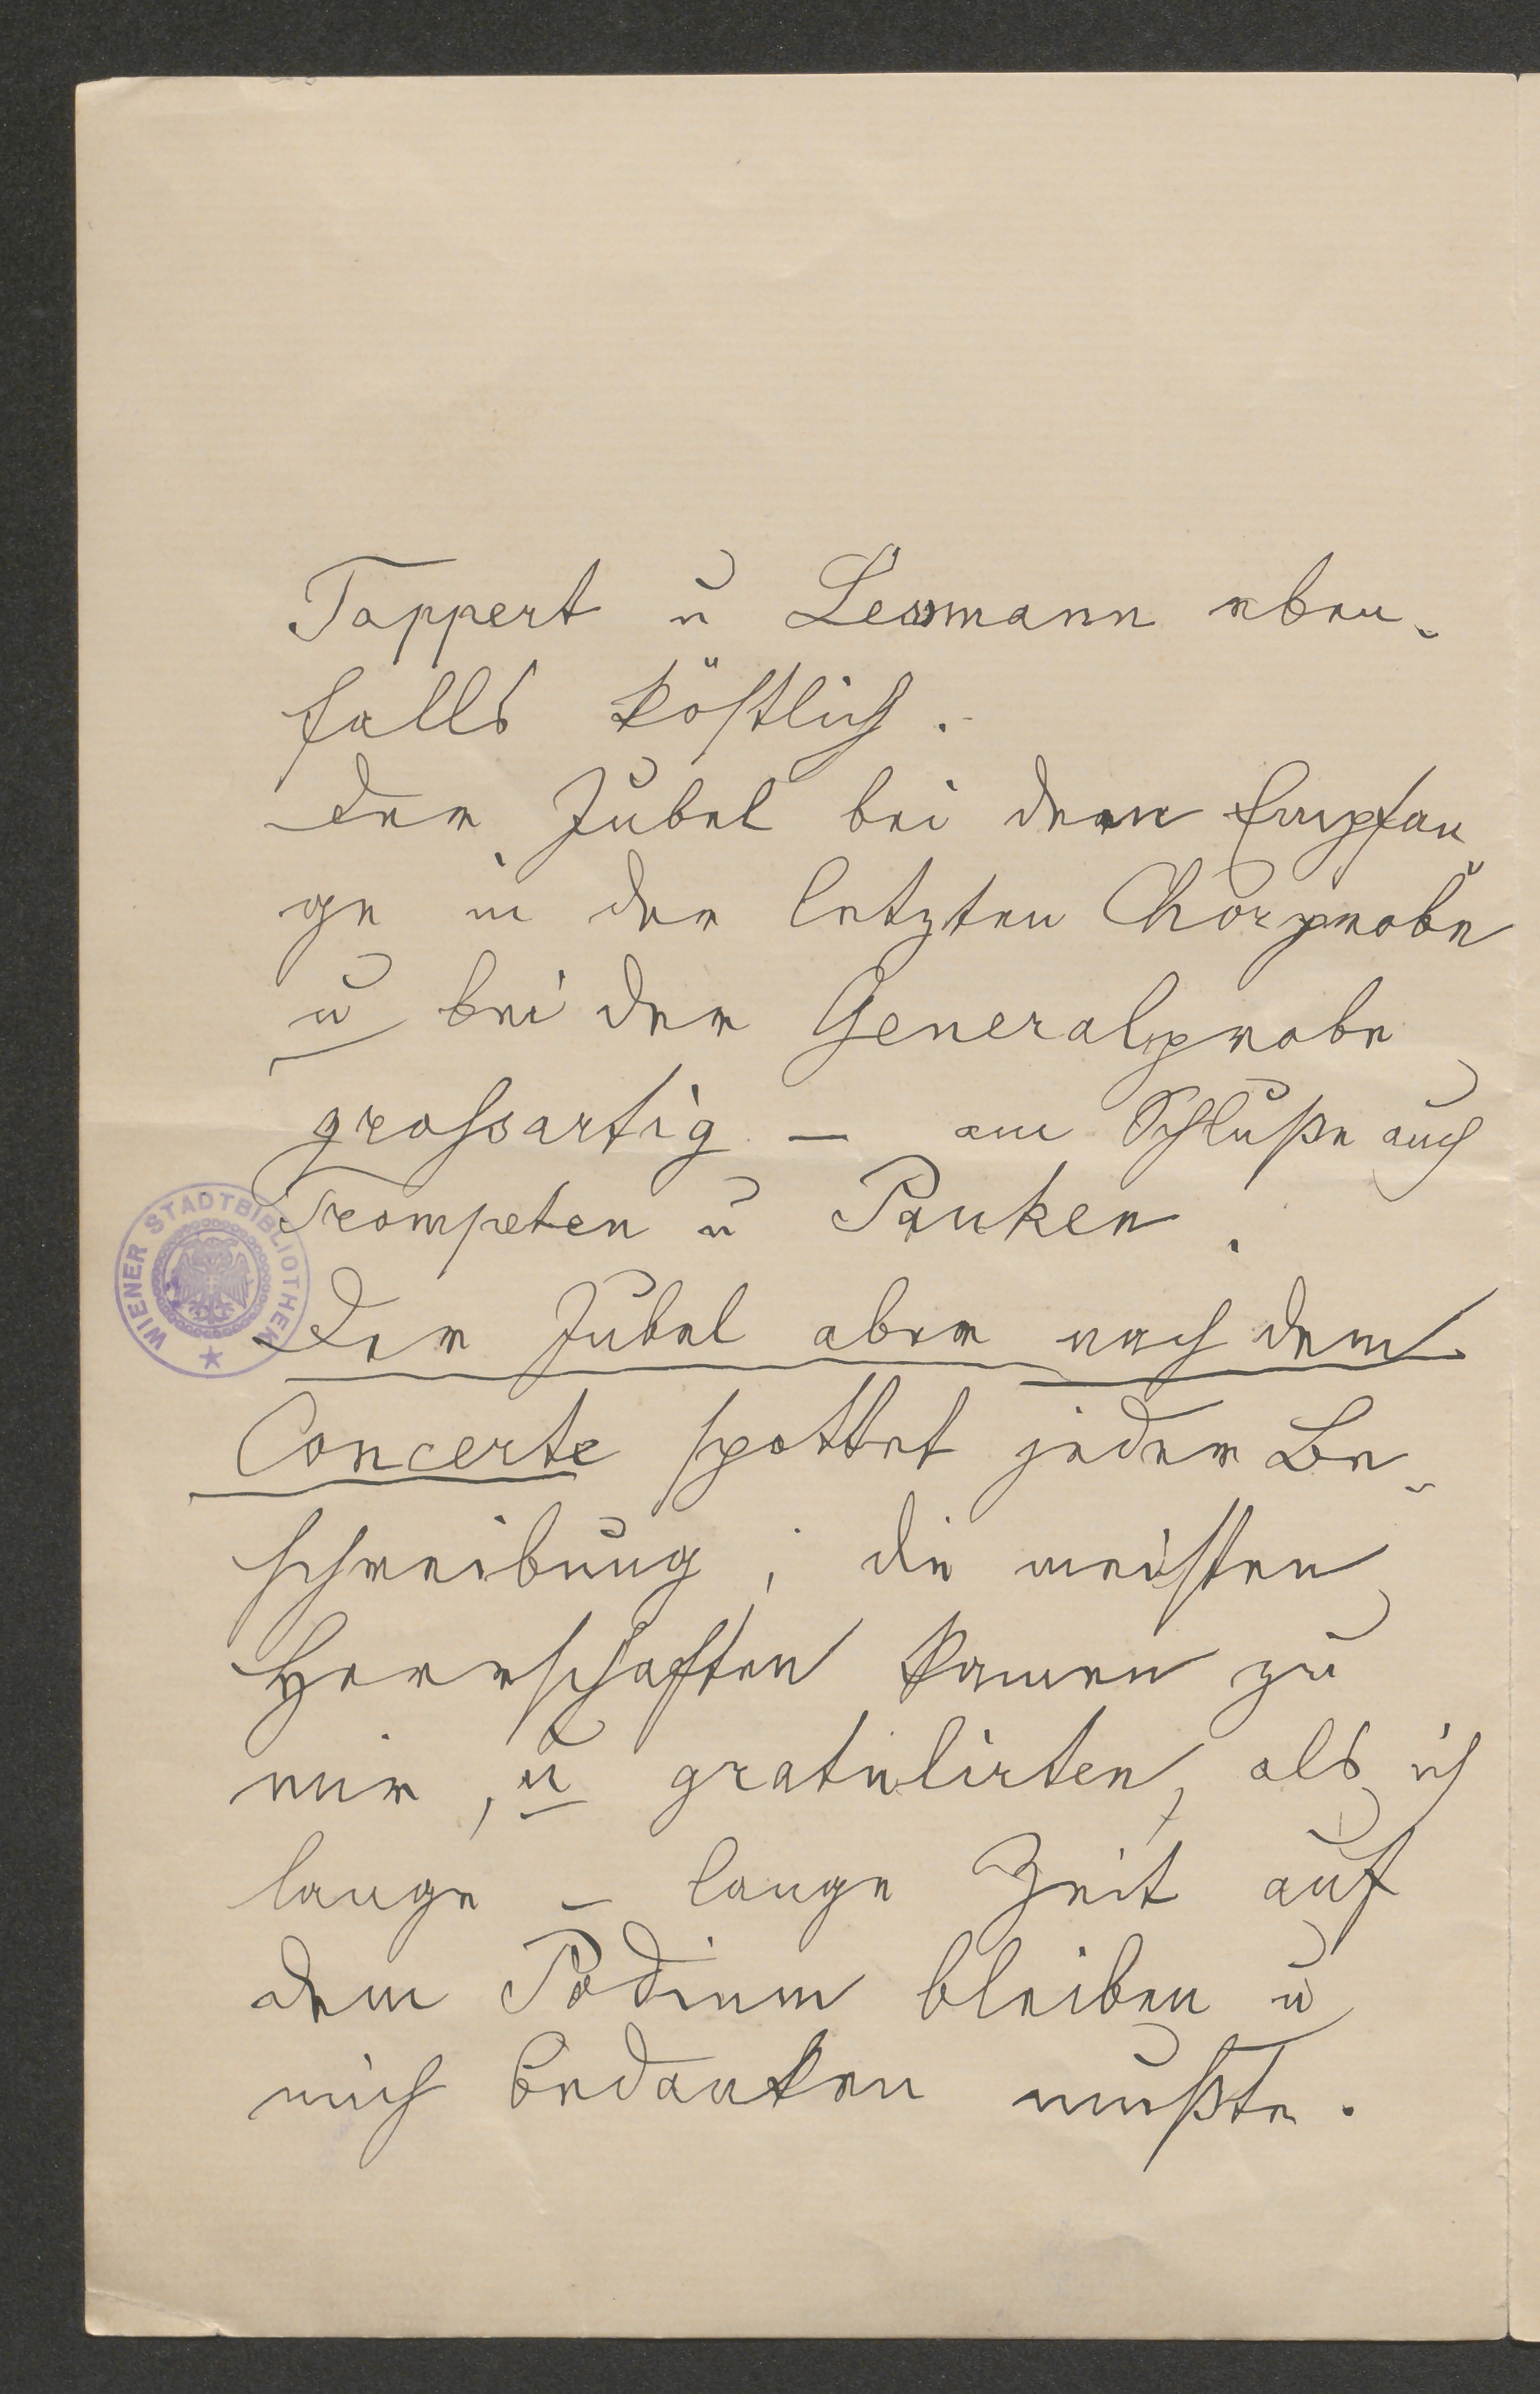 Tappert u Lessmann eben-
falls köstlich.
Der Jubel bei dem Empfan-
ge in der letzten Chorprobe
u bei der Generalprobe
grossartig – am Schluße auch
Trompeten u Pauken.
Der Jubel aber nach dem
Concerte spottet jeder Be-
schreibung; die meisten
Herrschaften kamen zu
mir, u gratulirten, als ich
lange – lange Zeit auf
dem Podium bleiben u
mich bedanken mußte.
WIENER STADTBIBLIOTHEK